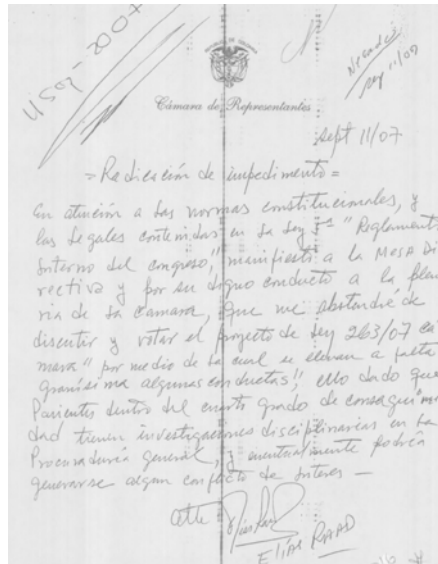 Negado
sep 11/07
Cámara de Representantes
sept 11/07
= Radicación de impedimento =
En atención a las normas constitucionales, y
las legales contenidas en la Ley 5ª "Reglamento
Interno del congreso", manifiesto a la Mesa Di
rectiva y por su digno conducto a la plena
ria de la Camara, que me abstendré de
discutir y votar el proyecto de Ley 263/07 Ca
mara "por medio de la cual se elevan a falta
gravísima algunas conductas", ello dado que
Parientes dentro del cuarto grado de consagui ni
dad tienen investigaciones disciplinarias en la
Procuraduría general, y eventualmente podría
generarse algun conflicto de Interes —
Att
ELÍAS RAAD